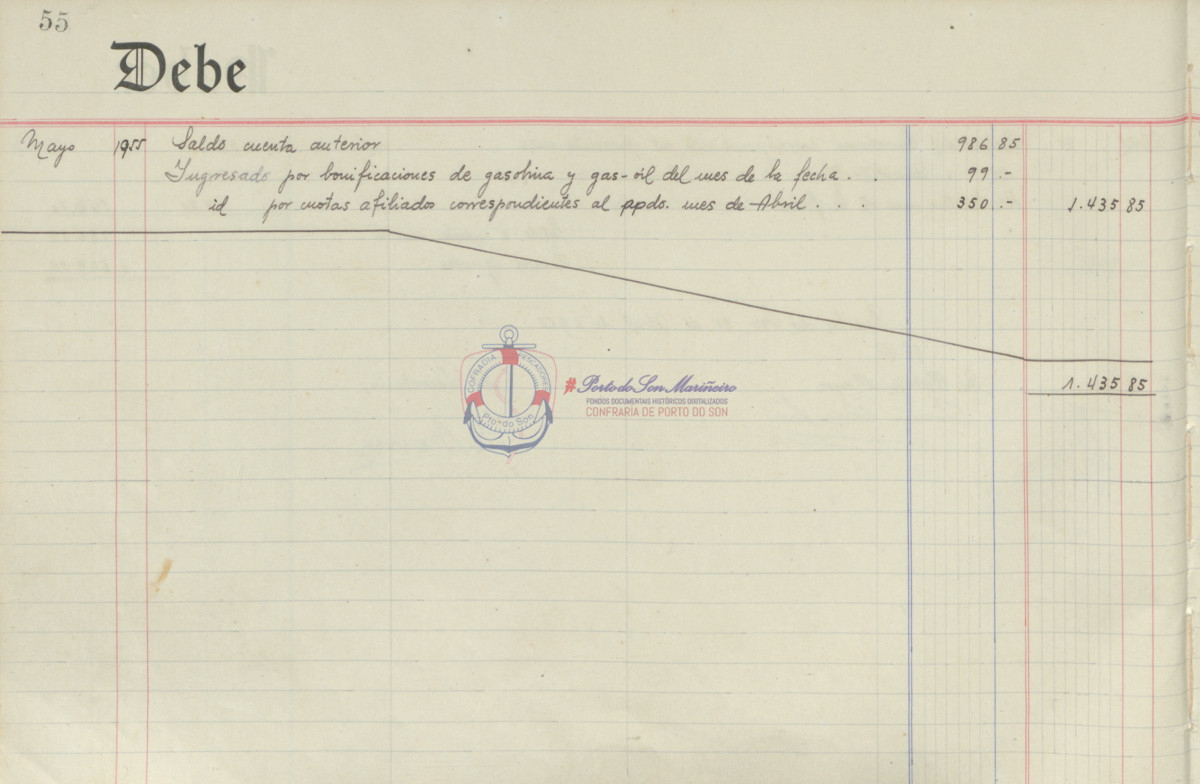 55
Debe
Mayo 1955 Saldo cuenta anterior 986 85
Ingresado por bonificaciones de gasolina y gas-oil del mes de la fecha . . 99 .-
id por cuotas afiliados correspondientes al ppdo. mes de Abril . . . 350 .- 1.435 85
1.435 85
COFRADIA PESCADORES
Pto. do Son
#Porto do Son Mariñeiro
FONDOS DOCUMENTAIS HISTÓRICOS DIXITALIZADOS
CONFRARÍA DE PORTO DO SON